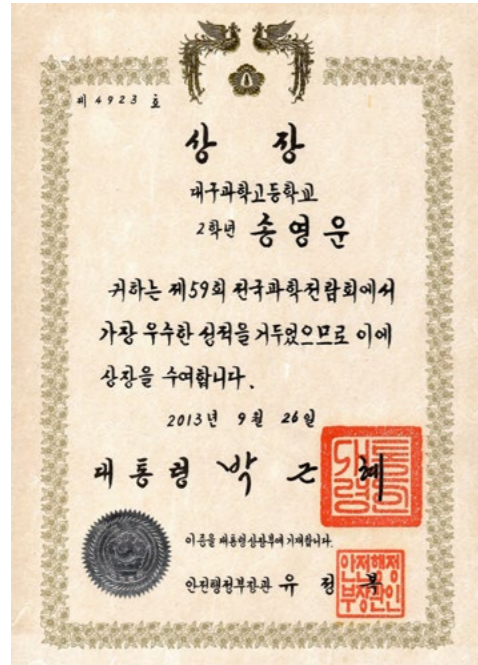 제 4923 호
상 장
대구과학고등학교
2학년 송영운
귀하는 제59회 전국과학전람회에서
가장 우수한 성적을 거두었으므로 이에
상장을 수여합니다.
2013년 9월 26일
대통령 박근혜
대통령의인
이 증을 대통령상장부에 기재합니다.
안전행정부장관 유정복
안전행정
부장관인